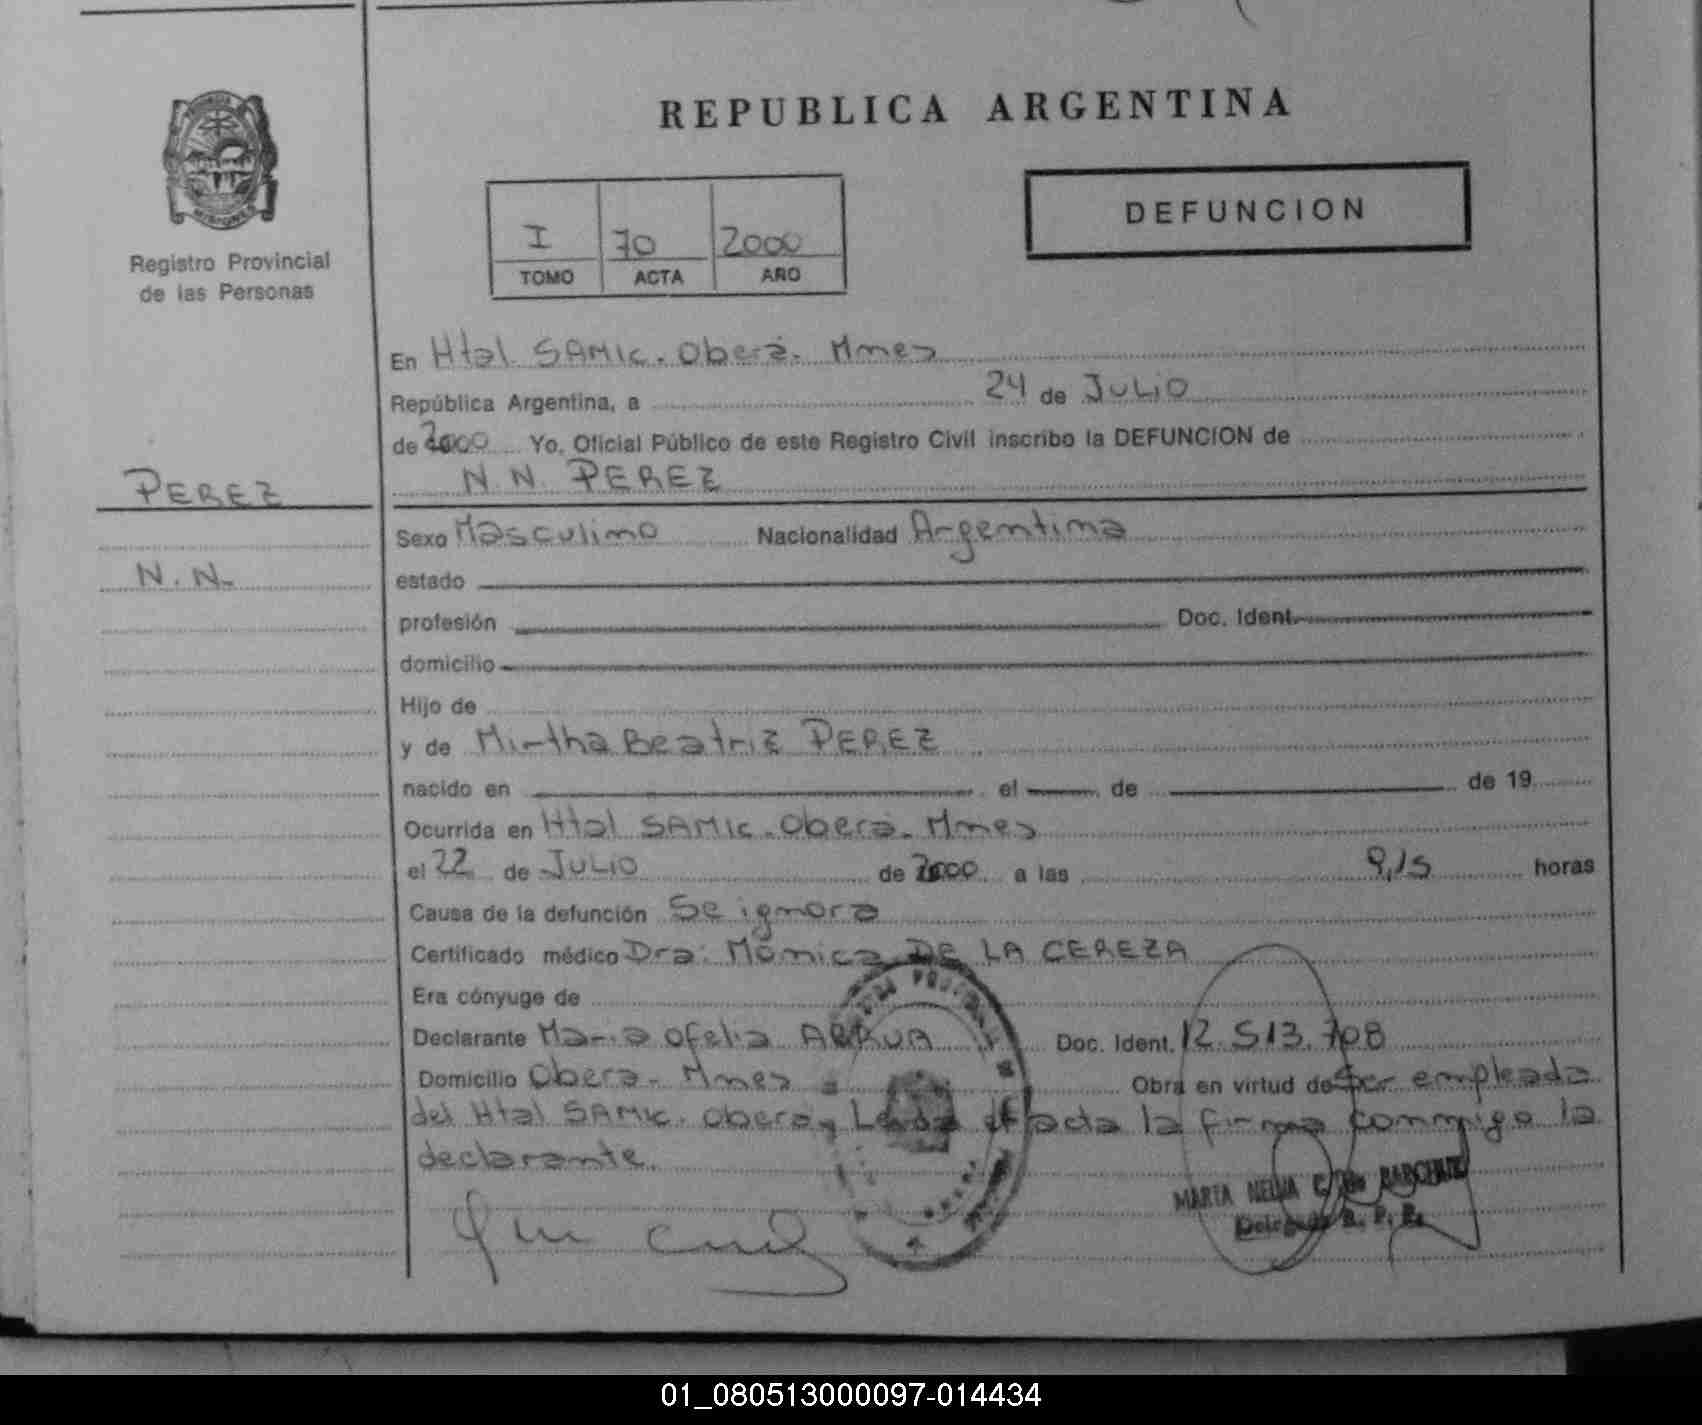 REPUBLICA ARGENTINA
MISIONES
Registro Provincial
de las Personas
I 70 2000
TOMO ACTA AÑO
DEFUNCION
En Htal SAMIC. Oberá. Mnes
República Argentina, a 24 de JULIO
de 2000 Yo, Oficial Público de este Registro Civil inscribo la DEFUNCION de
PEREZ
N.N. PEREZ
N.N.
Sexo Masculino Nacionalidad Argentina
estado
profesión Doc. Ident.
domicilio
Hijo de
y de Mirtha Beatriz PEREZ
nacido en el de de 19
Ocurrida en Htal SAMIC. Oberá. Mnes
el 22 de JULIO de 2000 a las 9,15 horas
Causa de la defunción Se ignora
Certificado médico Dra: Mónica DE LA CEREZA
Era cónyuge de
Declarante Maria Ofelia ARRUA Doc. Ident. 12.513.708
Domicilio Oberá. Mnes Obra en virtud de Ser empleada
del Htal SAMIC. Oberá, Leída el acta la firma conmigo la
declarante.
MARTA
R. P. P.
01_080513000097-014434